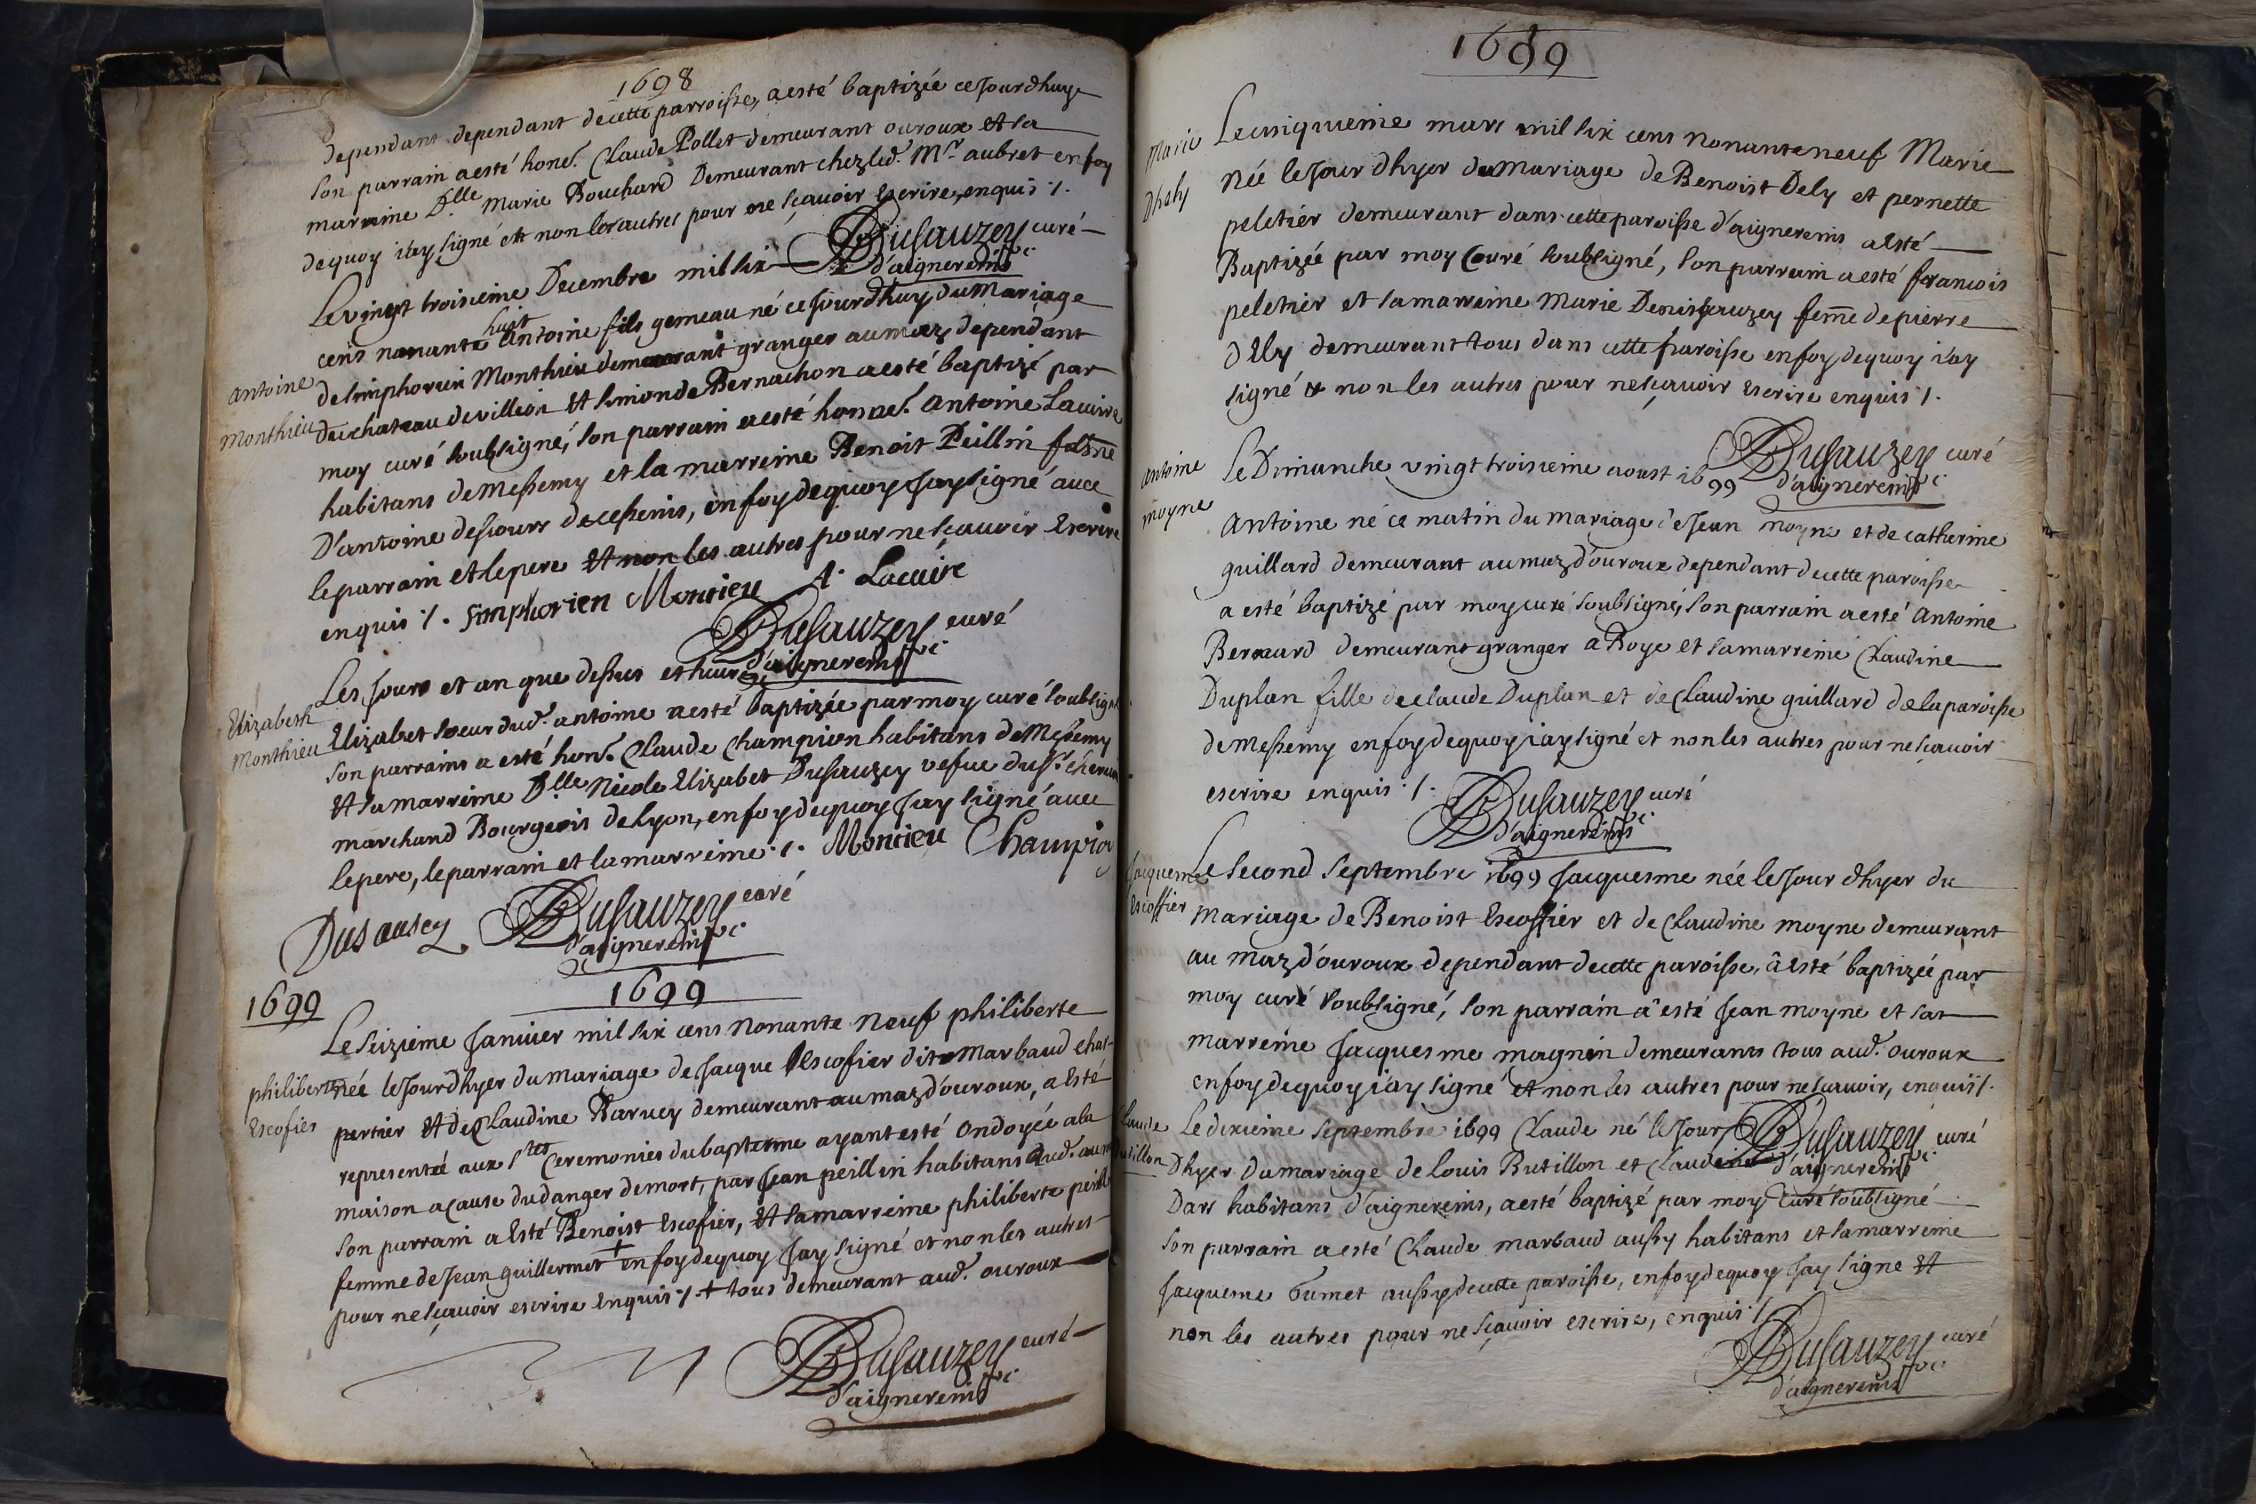 1698
dependant dependant decette parroisse, a esté baptizée cejourdhuy
son parrain a esté hones. Claude Pollet demeurant ouroux et sa
marraine D.lle Marie Bouchard Demeurant chez led. Mr. aubret en foy
dequoy i'ay signé et non les autres pour ne sçavoir escrire, enquis ./.
Dusauzey curé
d'aignereins
Le vingt troisieme Decembre mil six
huit
cens nonante Antoine fils gemeau né cejourdhuy du Mariage
Antoine
Monthieu
de simphorien Monthieu demeurant granger au maz dependant
du chateau de villion et simonde Bernachon a esté baptizé par
moy curé soubsigné, son parrain a esté honnes. Antoine Lacuire
habitans de Messemy et la marreine Benoit Peillin fame
D'antoine descours de cesseins, en foy dequoy jay signé avec
le parrain et le pere et non les autres pour ne scavoir Escrire
enquis ./. simphorien Moncieu A. Lacuire
Dusauzey curé
d'aignereins
Les Jours et an que dessus et heure
Elizabeth
Monthieu
Elizabet soeur dud. antoine a esté baptizée par moy curé soubsigné
son parrains a esté hon. Claude Champion habitans de Messemy
et sa marreine D.lle Nicole Elizabet Dusauzey vefue du Sr.
marchand Bourgeois de Lyon, en foy dequoy Jay signé avec
le pere, le parrain et la marreine ./. Moncieu Champion
Dusausey Dusauzey curé
d'aignereins
1699
1699
Le seizieme Janvier mil six cens Nonante Neuf philiberte
philiberte
Escofier
née le Jour dhyer du mariage de Jacque Escofier dit Marbaud char-
pertier et de Claudine Harvey demeurant au maz d'ouroux, a Esté
representée aux stes Ceremonies du baptesme ayant esté Ondoyée a la
maison a cause du danger de mort, par Jean peillin habitans Aud.
son parrain a Esté Benoist Escofier, et sa marreine philiberte
femme de Jean guillermet + en foy dequoy Jay signé et non les autres
pour ne sçavoir escrire Enquis ./. + tous demeurant aud. ouroux
Dusauzey curé
d'aignereins
1699
Marie
Dhely
Le cinquieme mars mil six cens Nonante neuf Marie
Née le Jour dhyer du Mariage de Benoist Dely et pernette
peletier demeurant dans cette paroisse d'aignereins a Esté
Baptizée par moy Curé soubsigné, son parrain a esté francois
peletier et sa marreine Marie Denis sauzey femme de pierre
d'Ely demeurant tous dans cette paroisse en foy dequoy i'ay
signé et non les autres pour ne sçavoir Escrire enquis ./.
Dusauzey curé
d'aignereins
Antoine
moyne
Le Dimanche vingt troisieme aoust 1699
Antoine né ce matin du mariage de Jean moyne et de catherine
guillard demeurant au maz d'ouroux dependant de cette paroisse
a esté baptizé par moy curé soubsigné, son parrain a esté Antoine
Bernard demeurant granger a Boye et sa marreine Claudine
Duplan fille de Claude Duplan et de Claudine guillard de la paroisse
de Messemy en foy dequoy iay signé et non les autres pour ne sçavoir
escrire enquis ./.
Dusauzey curé
d'aignereins
Jacquesme
Escoffier
Le second Septembre 1699 Jacquesme née le Jour dhyer du
mariage de Benoist Escoffier et de Claudine moyne demeurant
au maz d'ouroux dependant de cette paroisse, a esté baptizée par
moy curé soubsigné, son parrain a esté Jean moyne et sa
marreine Jacquesme magnin demeurans tous aud. ouroux
en foy dequoy iay signé et non les autres pour ne scavoir, enquis ./.
Dusauzey curé
d'aignereins
Claude
Butillon
Le dixieme Septembre 1699 Claude né le Jour
Dhyer du mariage de Louis Butillon et Claudine
Darr habitans d'aignereins, a esté baptizé par moy curé soubsigné
son parrain a esté Claude marbaud aussy habitans et sa marreine
Jacqueme Gumet aussy de cette paroisse, en foy dequoy Jay signe et
non les autres pour ne sçavoir escrire, enquis ./.
Dusauzey curé
d'aignereins